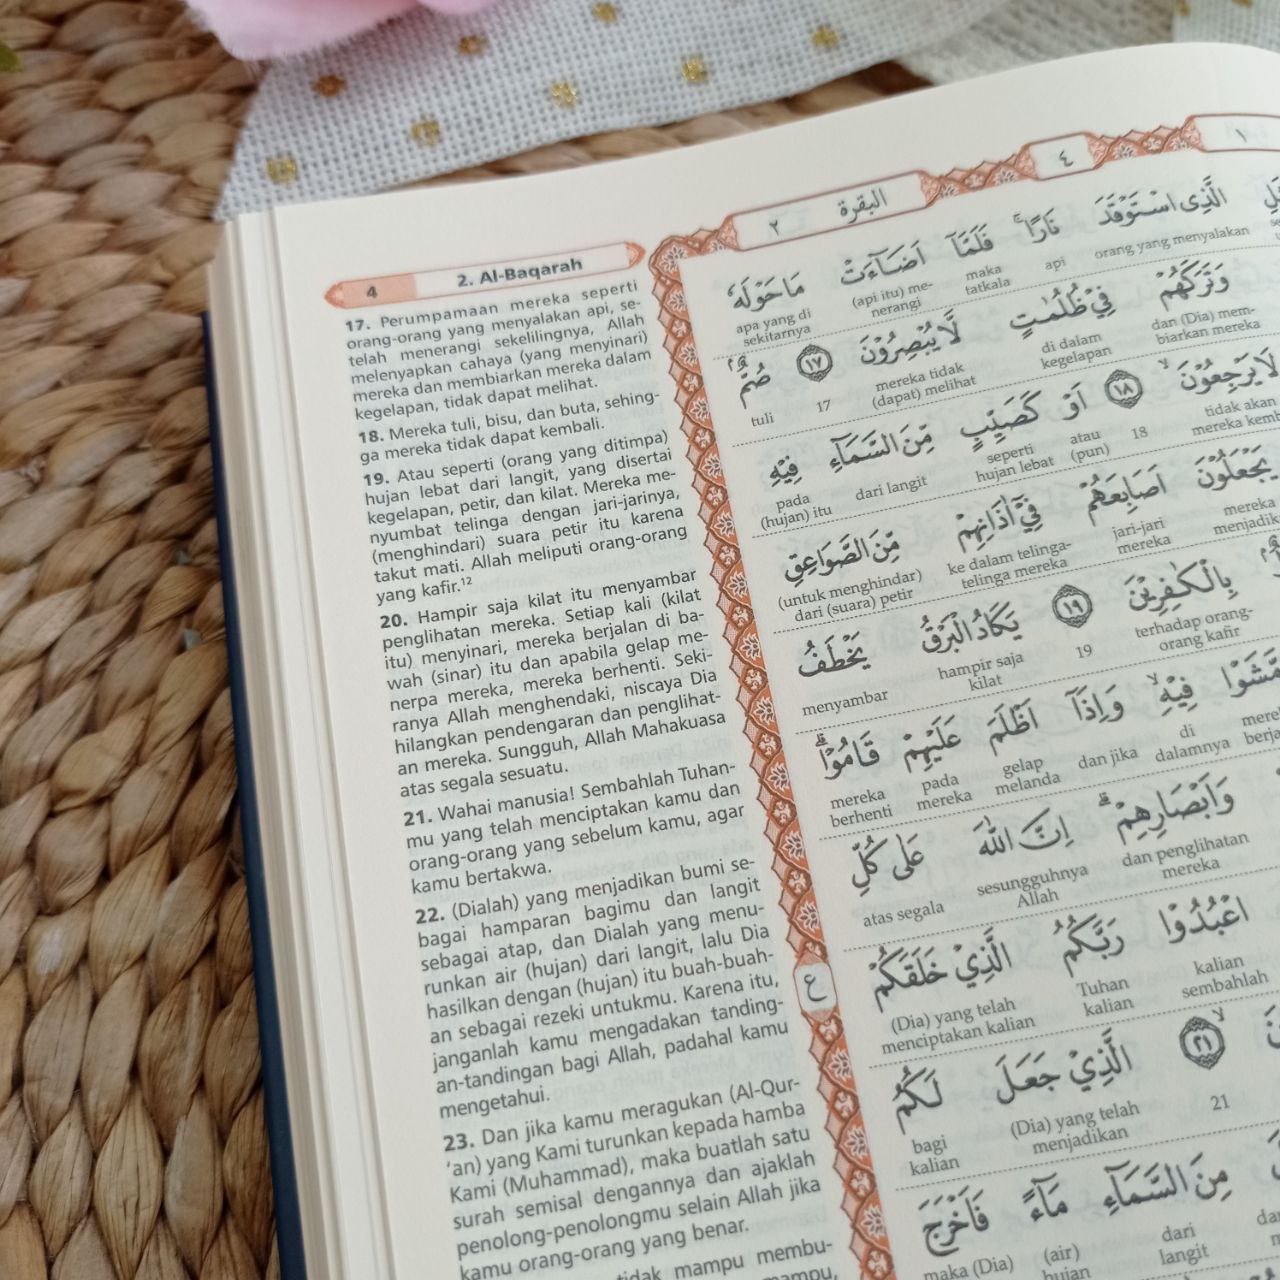 4
2. Al-Baqarah
17. Perumpamaan mereka seperti
orang-orang yang menyalakan api, se-
telah menerangi sekelilingnya, Allah
melenyapkan cahaya (yang menyinari)
mereka dan membiarkan mereka dalam
kegelapan, tidak dapat melihat.
18. Mereka tuli, bisu, dan buta, sehing-
ga mereka tidak dapat kembali.
19. Atau seperti (orang yang ditimpa)
hujan lebat dari langit, yang disertai
kegelapan, petir, dan kilat. Mereka me-
nyumbat telinga dengan jari-jarinya,
(menghindari) suara petir itu karena
takut mati. Allah meliputi orang-orang
yang kafir.¹²
20. Hampir saja kilat itu menyambar
penglihatan mereka. Setiap kali (kilat
itu) menyinari, mereka berjalan di ba-
wah (sinar) itu dan apabila gelap me-
nerpa mereka, mereka berhenti. Seki-
ranya Allah menghendaki, niscaya Dia
hilangkan pendengaran dan penglihat-
an mereka. Sungguh, Allah Mahakuasa
atas segala sesuatu.
21. Wahai manusia! Sembahlah Tuhan-
mu yang telah menciptakan kamu dan
orang-orang yang sebelum kamu, agar
kamu bertakwa.
22. (Dialah) yang menjadikan bumi se-
bagai hamparan bagimu dan langit
sebagai atap, dan Dialah yang menu-
runkan air (hujan) dari langit, lalu Dia
hasilkan dengan (hujan) itu buah-buah-
an sebagai rezeki untukmu. Karena itu,
janganlah kamu mengadakan tanding-
an-tandingan bagi Allah, padahal kamu
mengetahui.
23. Dan jika kamu meragukan (Al-Qur-
'an) yang Kami turunkan kepada hamba
Kami (Muhammad), maka buatlah satu
surah semisal dengannya dan ajaklah
penolong-penolongmu selain Allah jika
kamu orang-orang yang benar.
tidak mampu membu-
mampu,
١ ٤ البقرة ٢
الَّذِى اسْتَوْقَدَ نَارًاۚ فَلَمَّآ اَضَاۤءَتْ مَا حَوْلَهٗ
orang yang menyalakan api maka tatkala (api itu) me-nerangi apa yang di sekitarnya
وَتَرَكَهُمْ فِيْ ظُلُمٰتٍ لَّا يُبْصِرُوْنَ ١٧ صُمٌّ ۢ
dan (Dia) mem-biarkan mereka di dalam kegelapan mereka tidak (dapat) melihat 17 tuli
لَا يَرْجِعُوْنَۙ ١٨ اَوْ كَصَيِّبٍ مِّنَ السَّمَاۤءِ فِيْهِ
tidak akan mereka kem 18 atau (pun) seperti hujan lebat dari langit pada (hujan) itu
يَجْعَلُوْنَ اَصَابِعَهُمْ فِيْٓ اٰذَانِهِمْ مِّنَ الصَّوَاعِقِ
mereka menjadik jari-jari mereka ke dalam telinga-telinga mereka (untuk menghindar) dari (suara) petir
بِالْكٰفِرِيْنَ ١٩ يَكَادُ الْبَرْقُ يَخْطَفُ
terhadap orang-orang kafir 19 hampir saja kilat menyambar
مَّشَوْا فِيْهِۙ وَاِذَآ اَظْلَمَ عَلَيْهِمْ قَامُوْاۗ
mere berja di dalamnya dan jika gelap melanda pada mereka mereka berhenti
وَاَبْصَارِهِمْۗ اِنَّ اللّٰهَ عَلٰى كُلِّ
dan penglihatan mereka sesungguhnya Allah atas segala
اعْبُدُوْا رَبَّكُمُ الَّذِيْ خَلَقَكُمْ
kalian sembahlah Tuhan kalian (Dia) yang telah menciptakan kalian
ع
٢١ الَّذِيْ جَعَلَ لَكُمُ
21 (Dia) yang telah menjadikan bagi kalian
مِنَ السَّمَاۤءِ مَاۤءً فَاَخْرَجَ
dari langit (air) hujan maka (Dia)